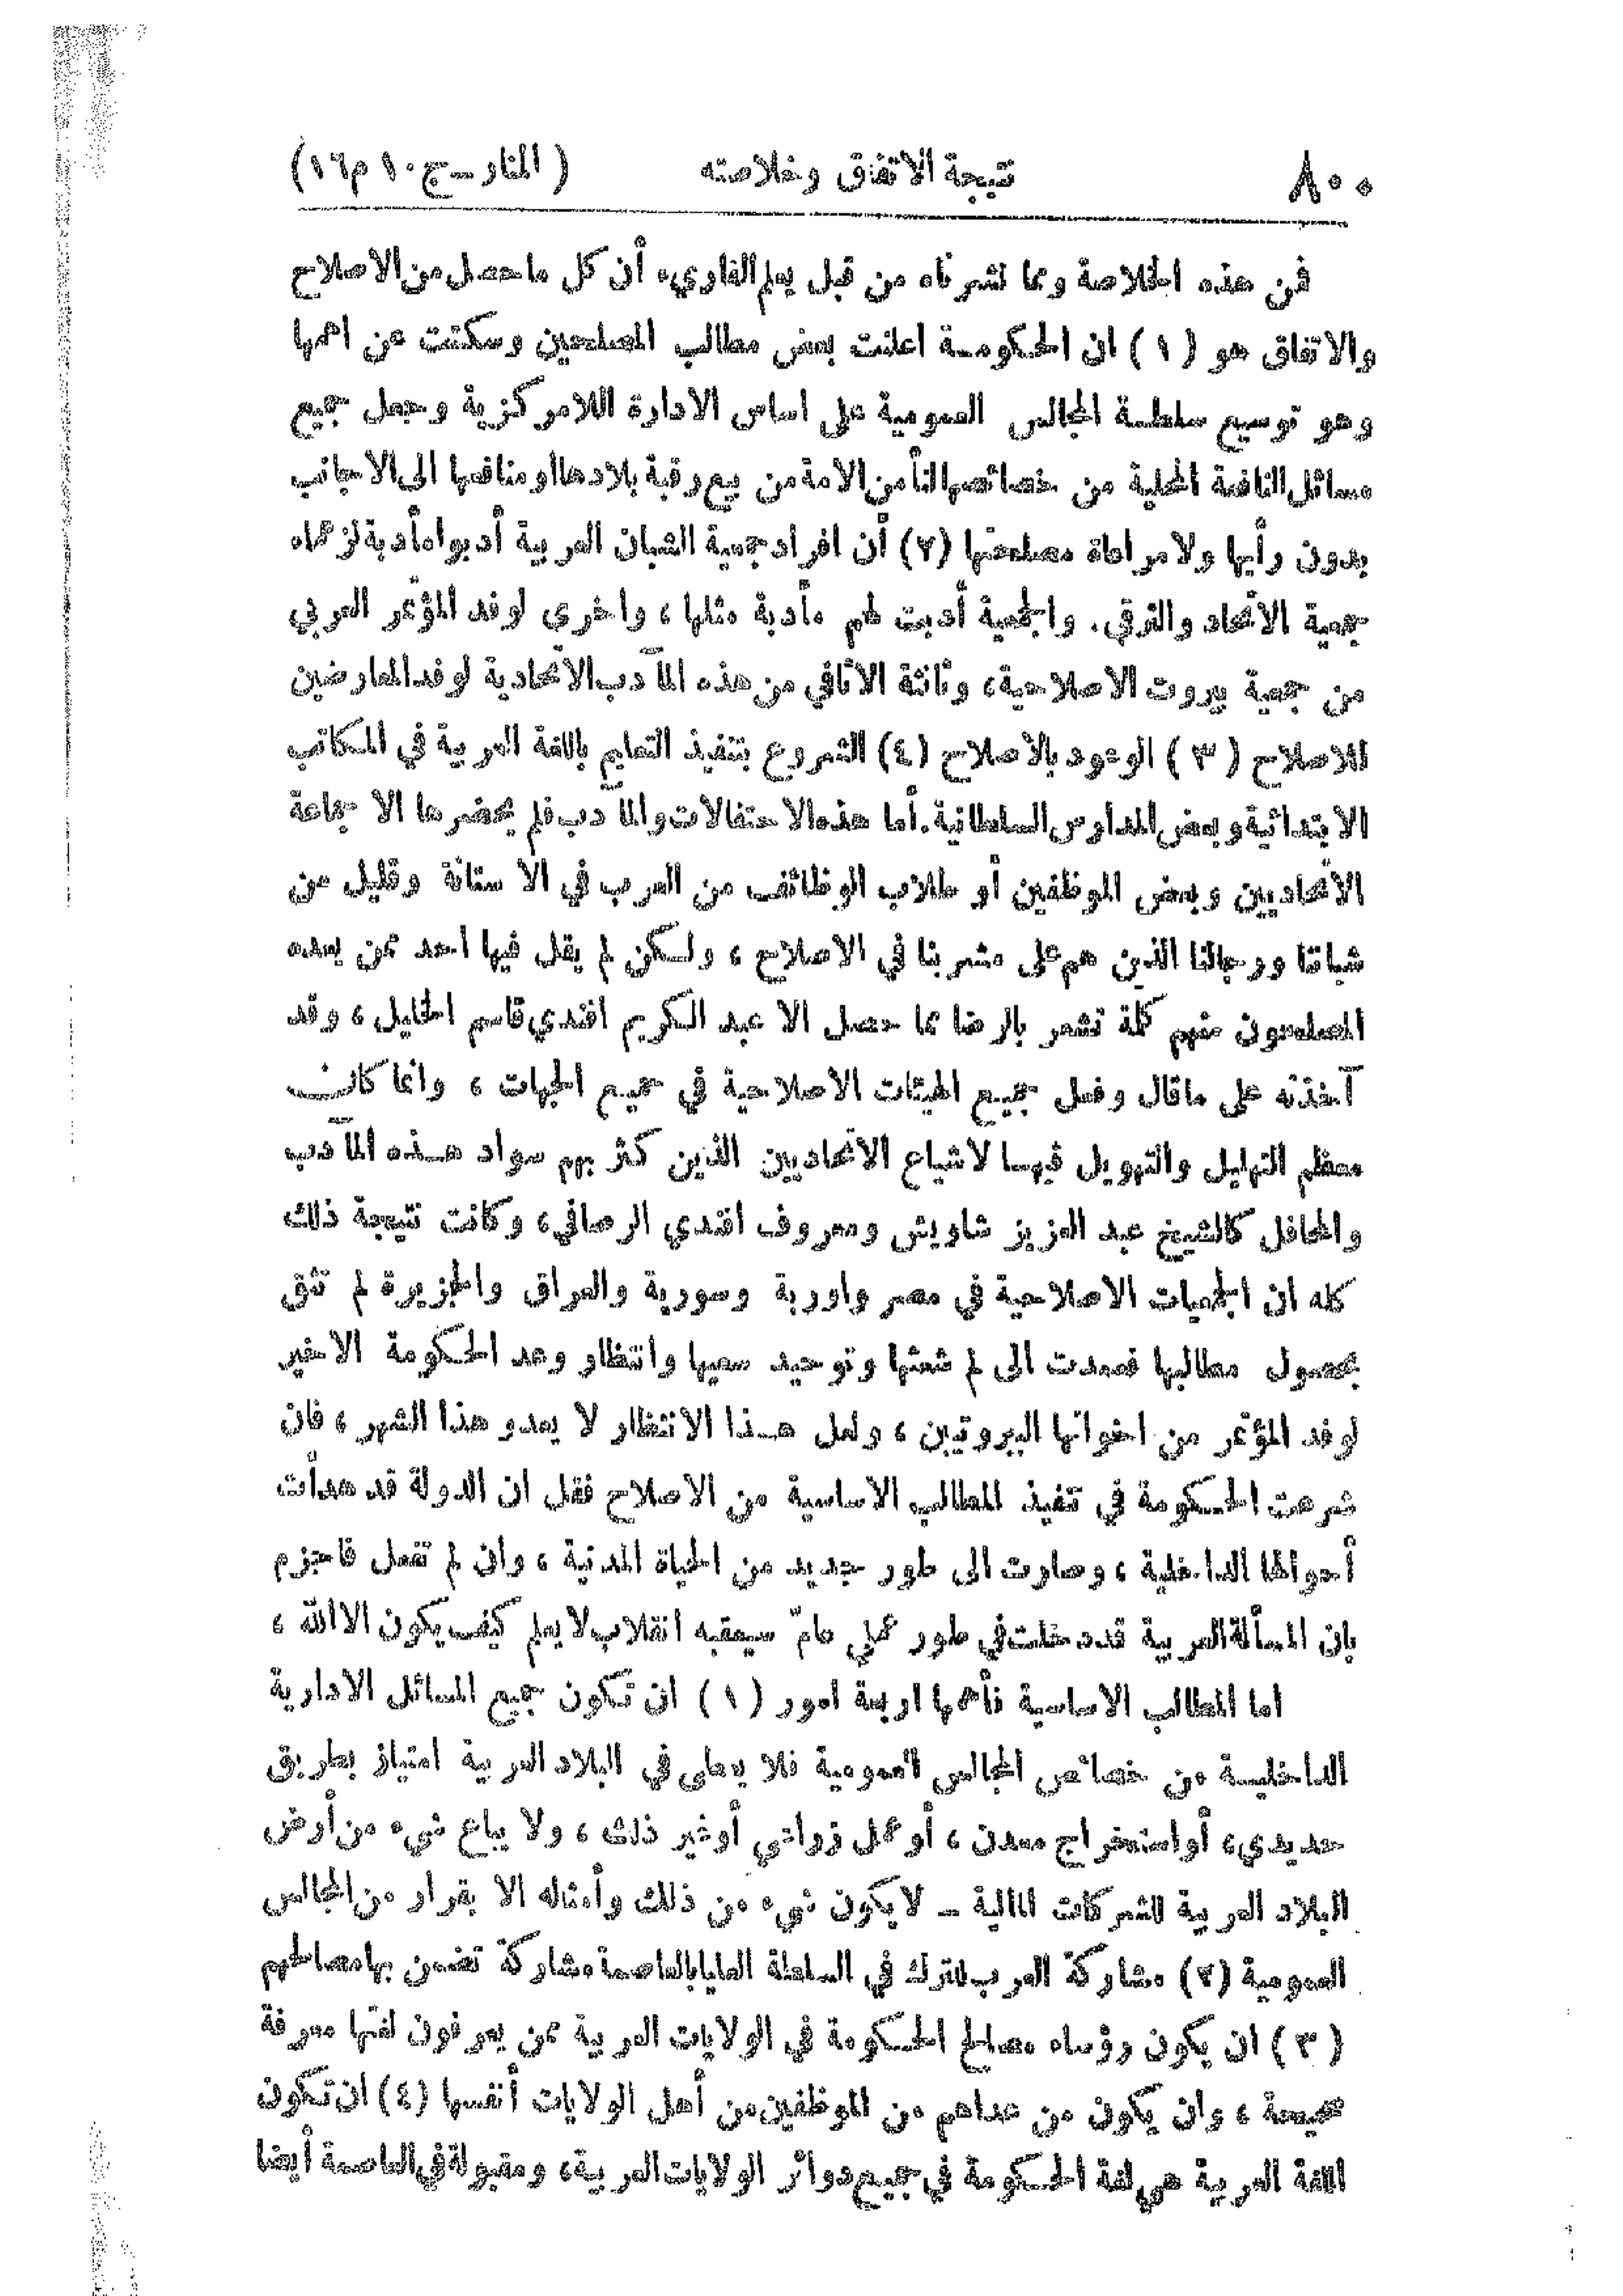 ٨٠٠ نتيجة الاتفاق وخلاصته (المنار ـ ج ١٠ م ١٦)
فمن هذه الخلاصة ومما نشرناه من قبل يعلم القاريء أن كل ما حصل من الاصلاح
والاتفاق هو (١) ان الحكومة اعلنت بعض مطالب المصلحين وسكتت عن اهمها
وهو توسيع سلطة المجالس العمومية على اساس الادارة اللامركزية وجعل جميع
مسائل النافعة المحلية من خصائصها لتأمن الامة من بيع رقبة بلادها او منافعها الى الاجانب
بدون رأيها ولا مراعاة مصلحتها (٢) أن افراد جمعية الشبان العربية أدبوا مأدبة لزعماء
جمعية الاتحاد والترقي. والجمعية أدبت لهم مأدبة مثلها ، واخرى لوفد المؤتمر العربي
من جمعية بيروت الاصلاحية، وثالثة الاثافي من هذه المآدب الاتحادية لوفد المعارضين
للاصلاح (٣) الوعود بالاصلاح (٤) الشروع بتنفيذ التعليم باللغة العربية في المكاتب
الابتدائية وبعض المدارس السلطانية. أما هذه الاحتفالات والمآدب فلم يحضرها الا جماعة
الاتحاديين وبعض الموظفين أو طلاب الوظائف من العرب في الاستانة وقليل من
شباننا ورجالنا الذين هم على مشربنا في الاصلاح ، ولكن لم يقل فيها أحد ممن يعده
المصلحون منهم كلمة تشعر بالرضا مما حصل الا عبد الكريم افندي قاسم الخليل ، وقد
آخذته على ماقال وفعل جميع الهيئات الاصلاحية في جميع الجهات ، وانما كان
معظم التهليل والتهويل فيها لاشياع الاتحاديين الذين كثر بهم سواد هذه المآدب
والمحافل كالشيخ عبد العزيز شاويش ومعروف افندي الرصافي، وكانت نتيجة ذلك
كله ان الجمعيات الاصلاحية في مصر واوربة وسورية والعراق والجزيرة لم تثق
بحصول مطالبها فعمدت الى لم شعثها وتوحيد سعيها وانتظار وعد الحكومة الاخير
لوفد المؤتمر من اخوانها البيروتيين ، ولعل هذا الانتظار لا يعدو هذا الشهر ، فان
شرعت الحكومة في تنفيذ المطالب الاساسية من الاصلاح فقل ان الدولة قد هدأت
أحوالها الداخلية ، وصارت الى طور جديد من الحياة المدنية ، وان لم تفعل فاجزم
بان المسألة العربية قد دخلت في طور عملي عامّ سيعقبه انقلاب لا يعلم كيف يكون الا الله ،
اما المطالب الاساسية فأهمها اربعة امور (١) ان تكون جميع المسائل الادارية
الداخلية من خصائص المجالس العمومية فلا يعطى في البلاد العربية امتياز بطريق
حديدي، أو استخراج معدن ، أو عمل زراعي أو غير ذلك ، ولا يباع شيء من أرض
البلاد العربية للشركات المالية ـ لا يكون شيء من ذلك وأمثاله الا بقرار من المجالس
العمومية (٢) مشاركة العرب للترك في السلطة العليا بالعاصمة مشاركة تضمن بها مصالحهم
(٣) ان يكون رؤساء مصالح الحكومة في الولايات العربية ممن يعرفون لغتها معرفة
صحيحة ، وان يكون من عداهم من الموظفين من أهل الولايات أنفسها (٤) ان تكون
اللغة العربية هي لغة الحكومة في جميع دوائر الولايات العربية، ومقبولة في العاصمة أيضا